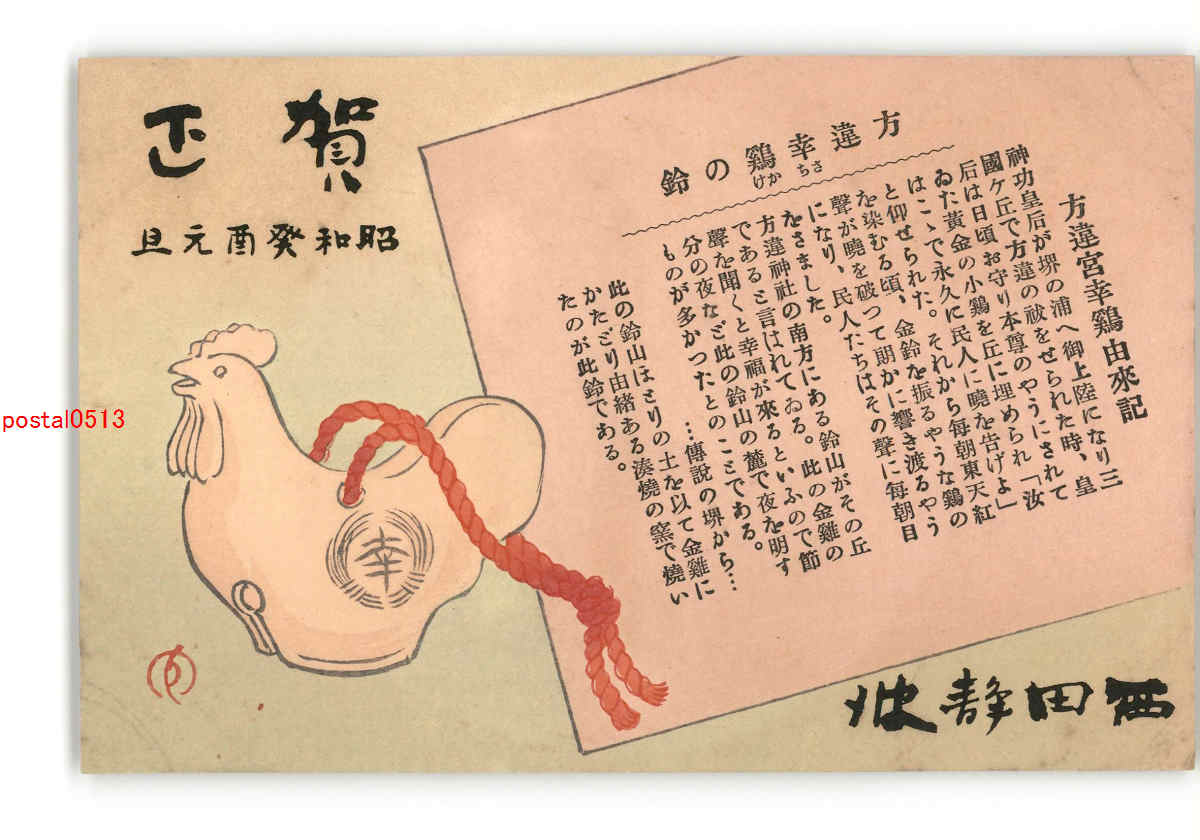 賀正
昭和癸酉元旦
方違幸鷄の鈴
さち
かけ
方違宮幸鷄由來記
神功皇后が堺の浦へ御上陸になり三
國ケ丘で方違の祓をせられた時、皇
后は日頃お守り本尊のやうにされて
ゐた黃金の小鷄を丘に埋められ「汝
はこゝで永久に民人に曉を告げよ」
と仰せられた。それから每朝東天紅
を染むる頃、金鈴を振るやうな鷄の
聲が曉を破つて朗かに響き渡るやう
になり、民人たちはその聲に每朝目
をさました。
方違神社の南方にある鈴山がその丘
であると言はれてゐる。此の金雞の
聲を聞くと幸福が來るといふので節
分の夜など此の鈴山の麓で夜を明す
ものが多かつたとのことである。
…傳說の堺から…
此の鈴山はとりの土を以て金雞に
かたどり由緖ある湊燒の窯で燒い
たのが此鈴である。
幸
西田靜波
postal0513